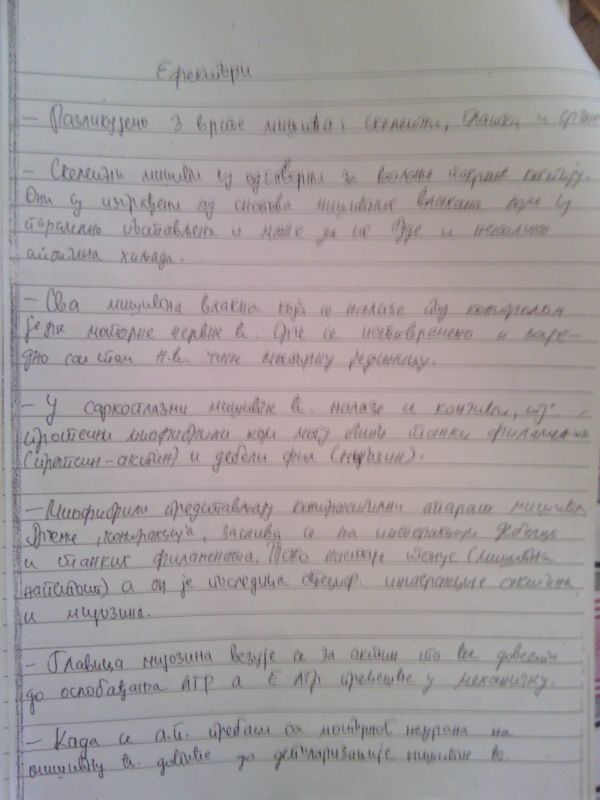 Ефектори
- Разликујемо 3 врсте мишића: скелетни, глатки и срчани
- Скелетни мишићи су одговорни за вољне покрете
Они су изграђени од снопова мишићних влакана која су
паралелно постављена и може да их буде и неколико
стотина хиљада.
- Сва мишићна влакна која се налазе под контролом
једне моторне нервне в.
заједно са том н.в. чине моторну јединицу.
- У саркоплазми мишићне в. налазе се
протеини миофибрила који могу бити танки филаменти
(протеин-актин) и дебели фил (миозин).
- Миофибрили представљају контрактилни апарат мишића.
контракција, заснива се на интеракцији дебелих
и танких филамената. Тако настаје тонус (мишићна
напетост) а он је последица интеракције актина
и миозина.
- Главица миозина везује се за актин што ће довести
до ослобађања АТР а Е АТР превешће у механичку.
- Када се а.п. пребаци са моторног неурона на
мишићну в. долази до деполаризације мишићне в.